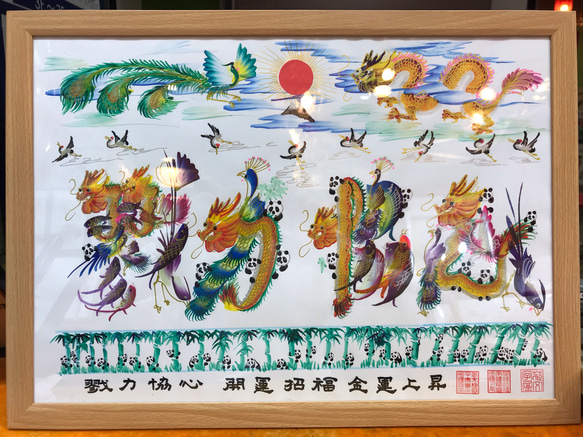 戮力協心
戮力協心 開運招福金運上昇